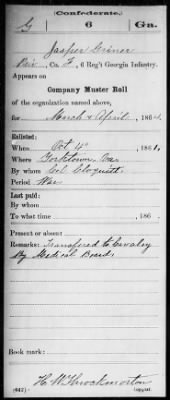 (Confederate.)
G 6 Ga.
Jasper Griner
Priv, Co. F, 6 Reg't Georgia Infantry.
Appears on
Company Muster Roll
of the organization named above,
for March & April, 1864.
Enlisted:
When Oct 4, 1861.
Where Yorktown, Va
By whom Col Colquitt
Period War
Last paid:
By whom
To what time , 186 .
Present or absent
Remarks: Transfered to Cavalry
By Medical Board.
Book mark:
(642) H. W. Throckmorton
Copyist.